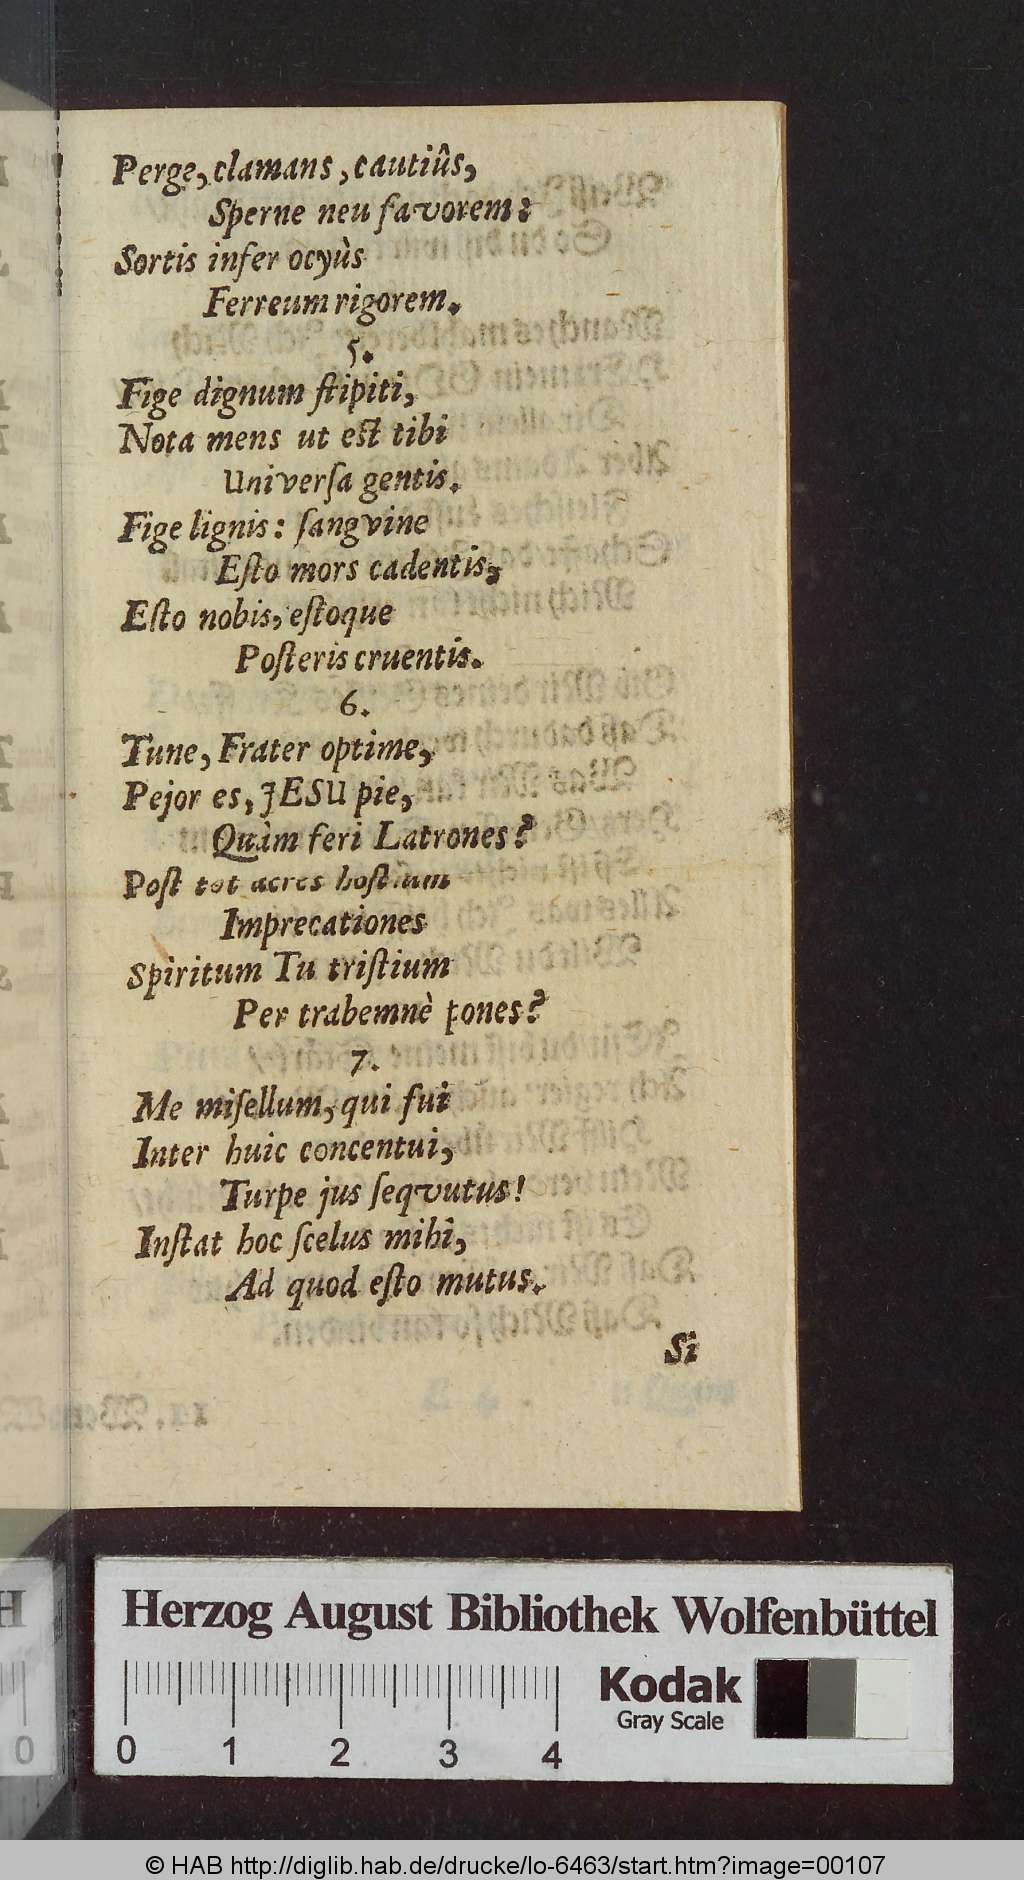 Perge, clamans, cautiûs,
Sperne neu favorem:
Sortis infer ocyùs
Ferreum rigorem.
5.
Fige dignum ſtipiti,
Nota mens ut eſt tibi
Univerſa gentis.
Fige lignis: ſangvine
Eſto mors cadentis,
Eſto nobis, eſtoque
Poſteris cruentis.
6.
Tune, Frater optime,
Pejor es, JESU pie,
Quàm feri Latrones?
Poſt tot acres hoſtium
Imprecationes
Spiritum Tu triſtium
Per trabemnè pones?
7.
Me miſellum, qui fui
Inter huic concentui,
Turpe jus ſeqvutus!
Inſtat hoc ſcelus mihi,
Ad quod eſto mutus.
Si
Herzog August Bibliothek Wolfenbüttel
Kodak
Gray Scale
0 1 2 3 4
© HAB http://diglib.hab.de/drucke/lo-6463/start.htm?image=00107